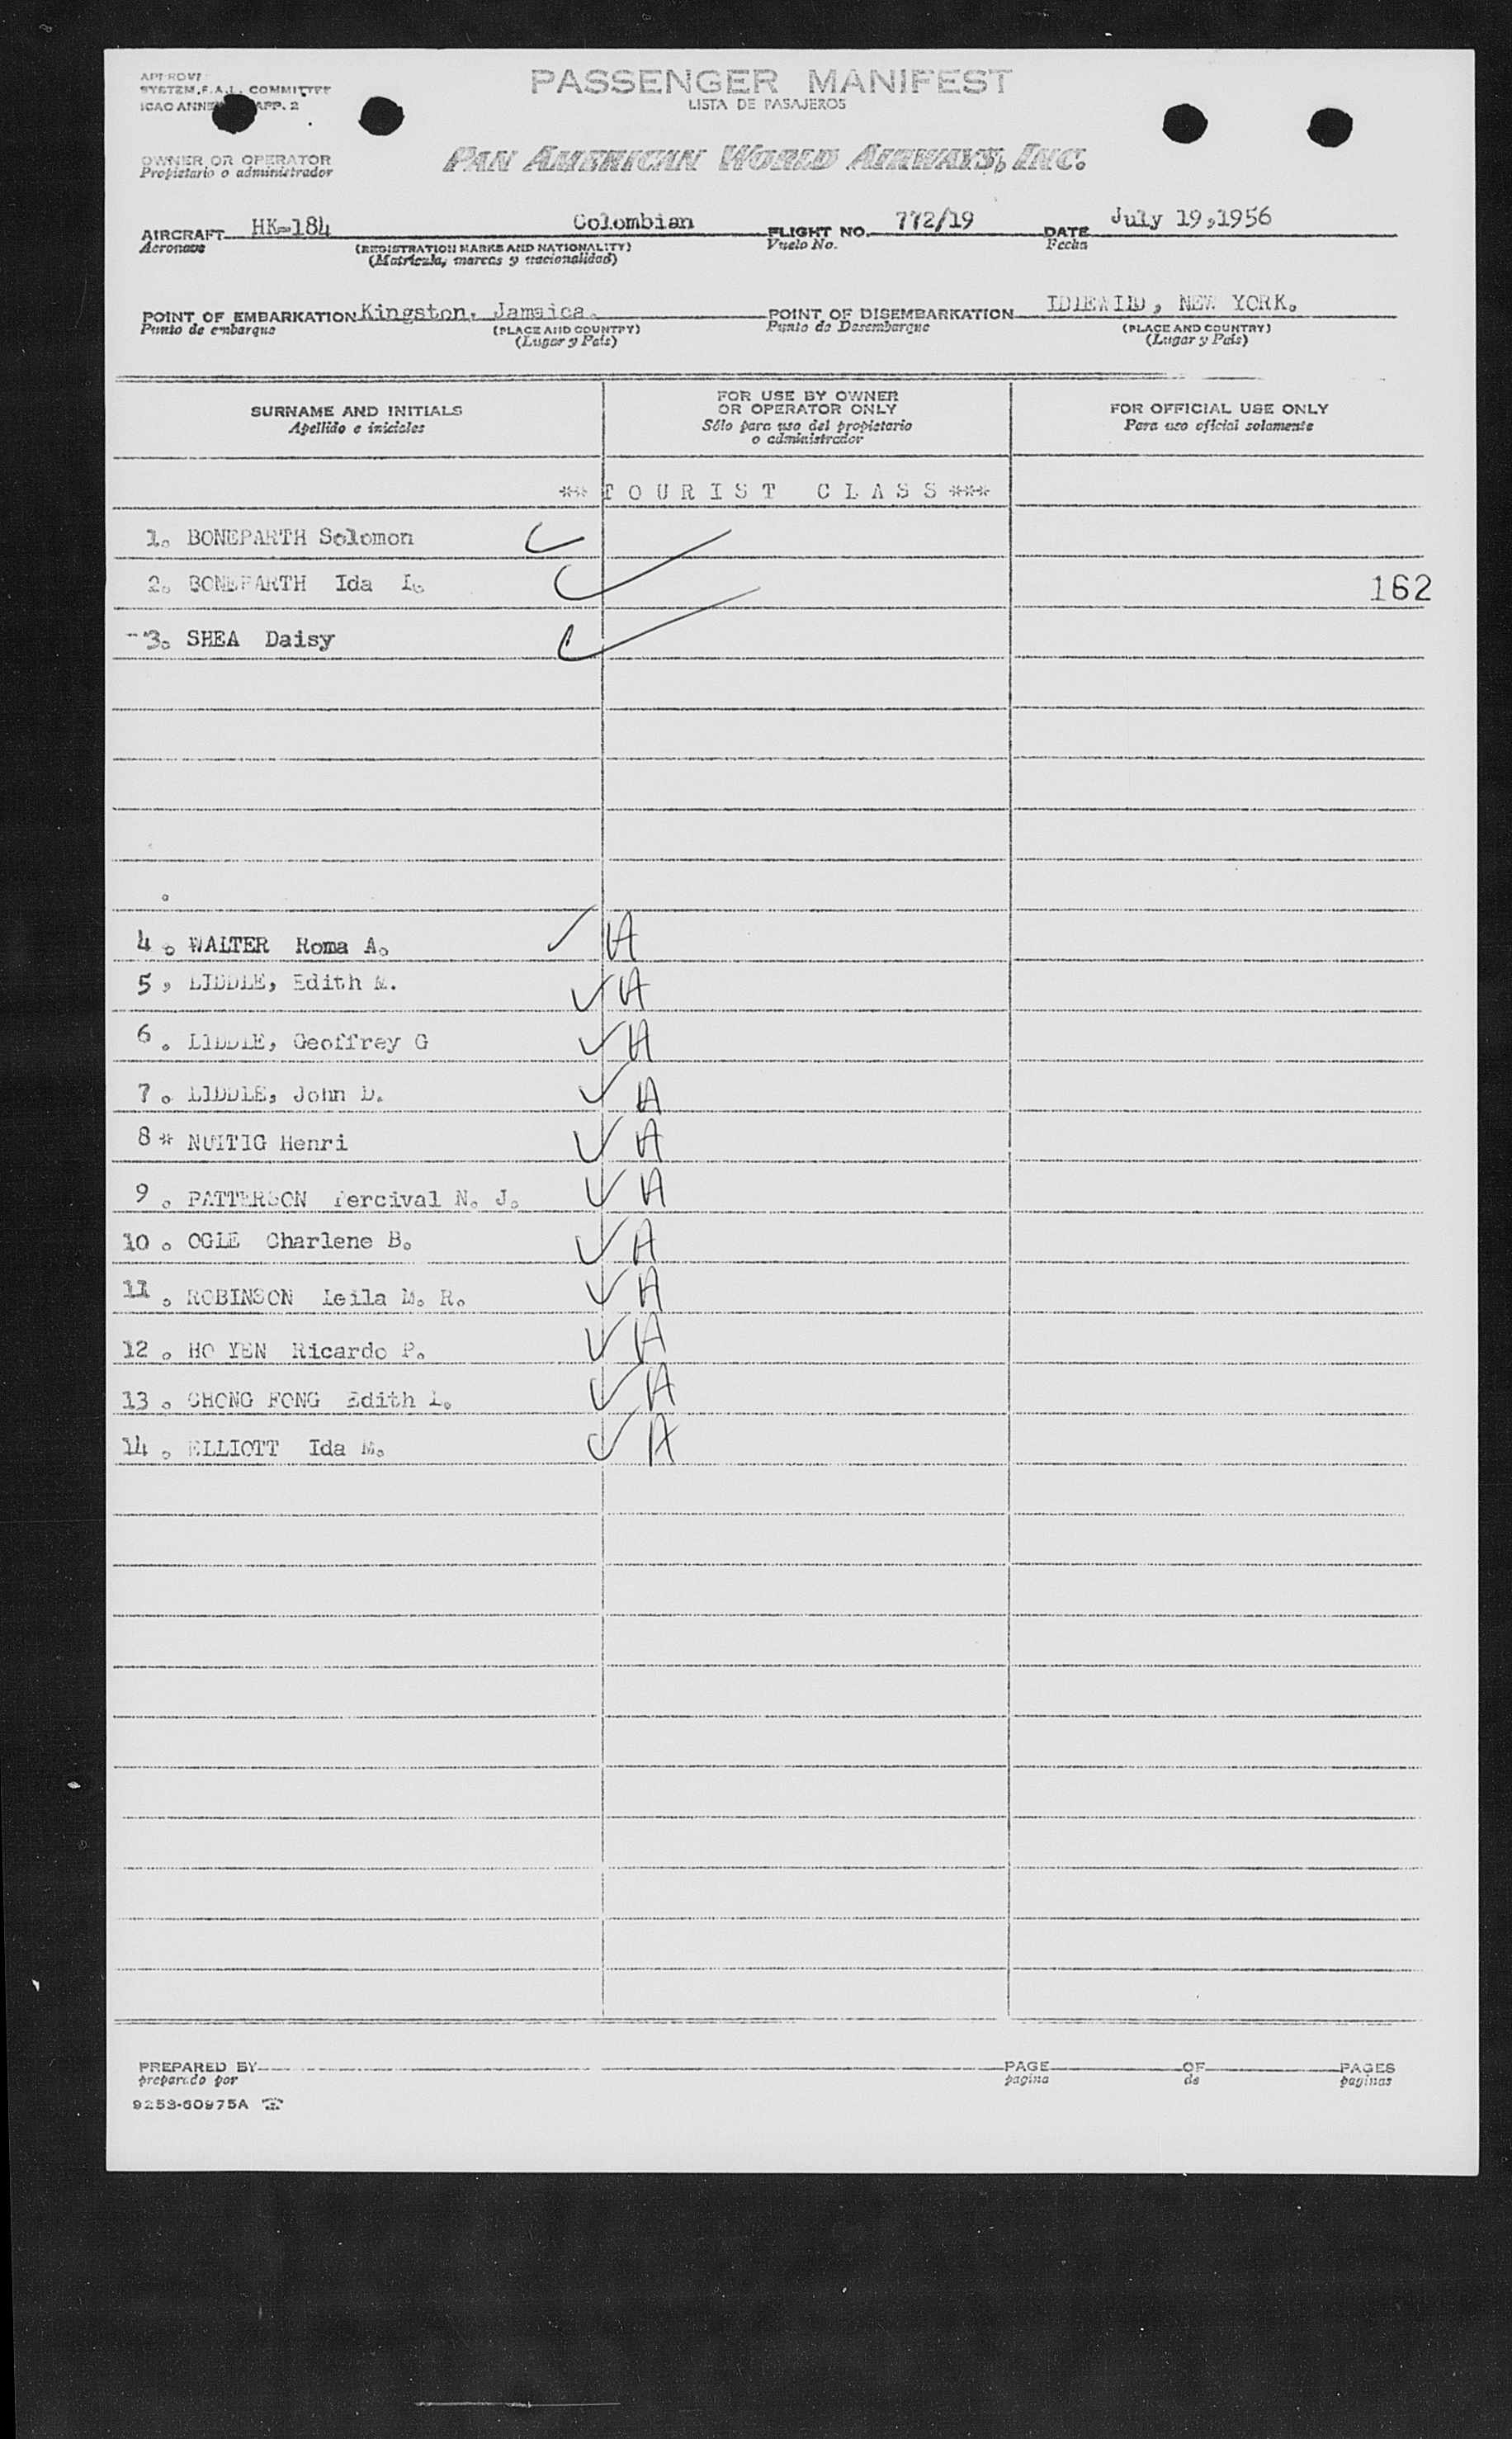 PASSENGER MANIFEST
LISTA DE PASAJEROS
SYSTEM F.A.L. COMMITTEE
ICAO APP. 2
OWNER OR OPERATOR
Propietario o administrador
PAN AMERICAN WORLD AIRWAYS, INC.
AIRCRAFT HK-184 Colombian FLIGHT NO. 772/19 DATE July 19,1956
Aeronave (REGISTRATION MARKS AND NATIONALITY) Vuelo No. Fecha
(Matricula, marcas y nacionalidad)
POINT OF EMBARKATION Kingston, Jamaica. POINT OF DISEMBARKATION IDLEWILD, NEW YORK.
Punto de embarque (PLACE AND COUNTRY) Punto de Desembarque (PLACE AND COUNTRY)
(Lugar y País) (Lugar y País)
SURNAME AND INITIALS
Apellido e iniciales
FOR USE BY OWNER
OR OPERATOR ONLY
Sólo para uso del propietario
o administrador
FOR OFFICIAL USE ONLY
Para uso oficial solamente
** T O U R I S T C L A S S ***
1. BONEPARTH Solomon
2. BONEPARTH Ida L. 162
-3. SHEA Daisy
4. WALTER Roma A. A
5, LIDDLE, Edith M. A
6. LIDDLE, Geoffrey G A
7. LIDDLE, John D. A
8* NUITIG Henri A
9. PATTERSON Percival N. J. A
10. OGLE Charlene B. A
11. ROBINSON Leila M. R. A
12. HO YEN Ricardo P. A
13. CHONG FONG Edith L. A
14. ELLIOTT Ida M. A
PREPARED BY PAGE OF PAGES
preparado por pagina de paginas
9253-60975A